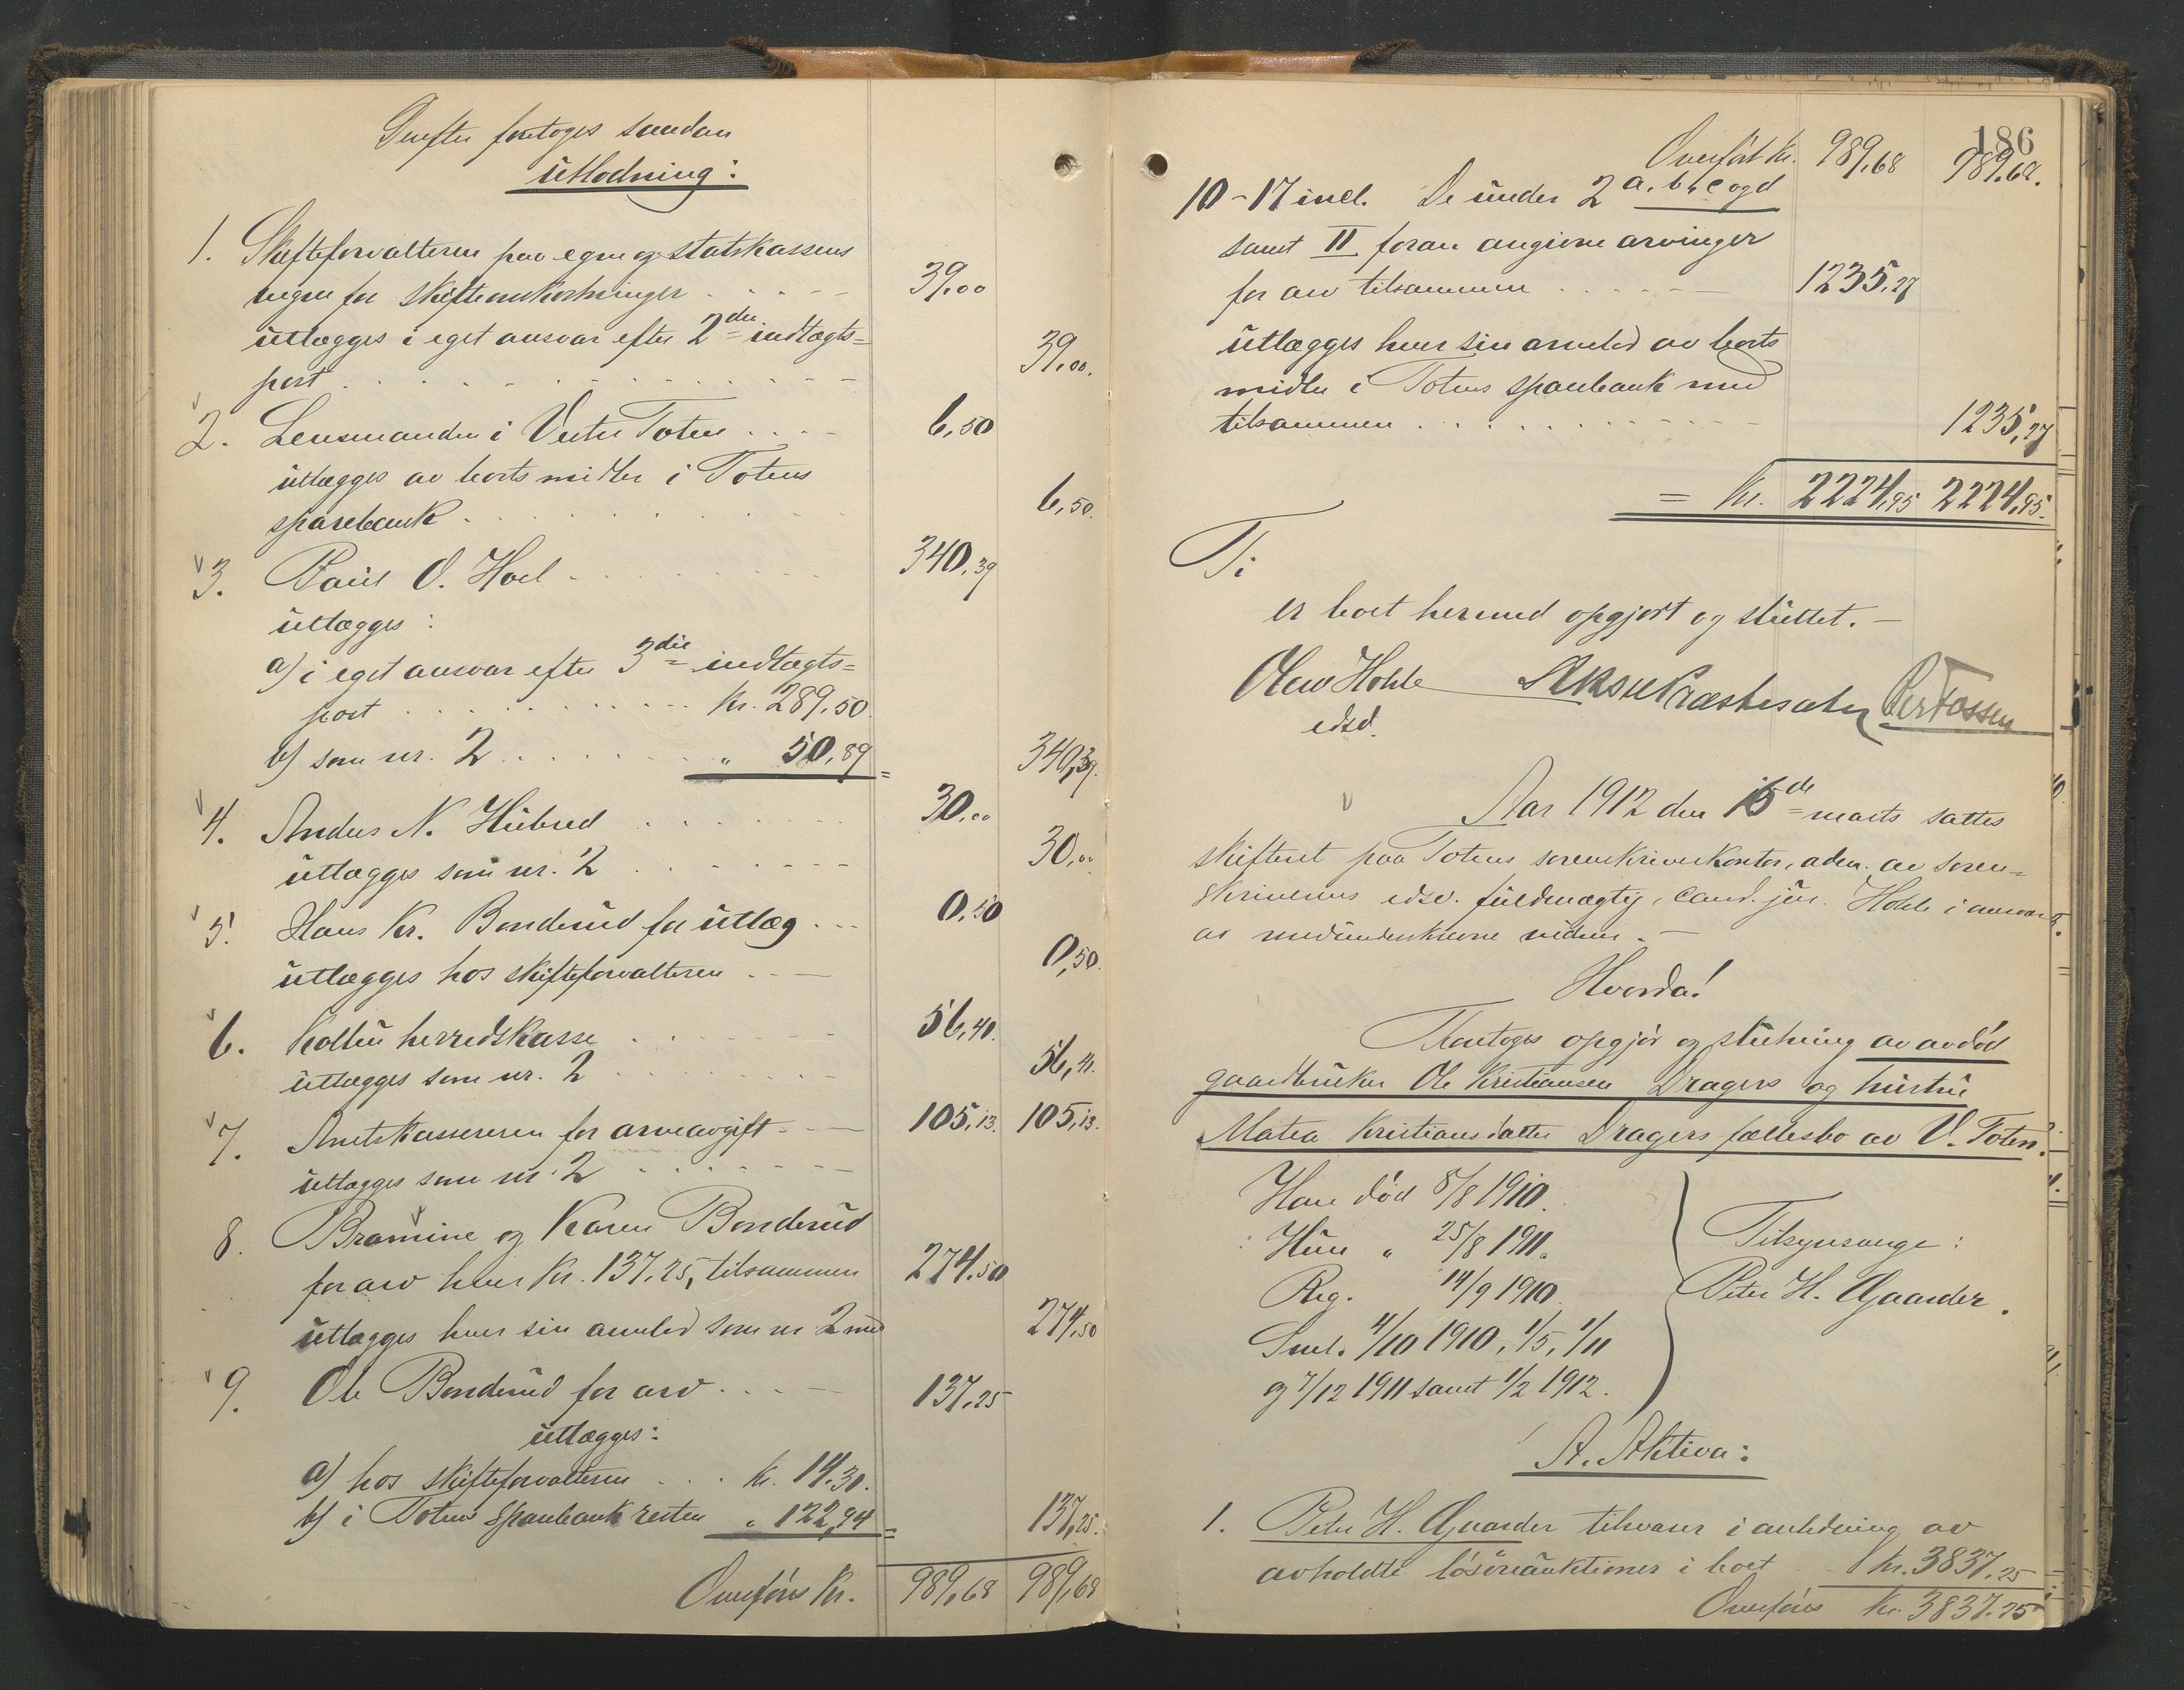 Derefter foretoges saadan
utlodning:
1. Skifteforvalteren paa egne og statskassens
vegne for skifteomkostninger . . . . 39,00
utlægges i eget ansvar efter 2den indtægts=
post . . . . 39,00.
2. Lensmanden i Vestre Toten . . . . 6,50
utlægges av boets midler i Totens
sparebank . . . . 6,50.
3. Paul O. Hoel . . . . 340,39
utlægges:
a) i eget ansvar efter 3die indtægts=
post . . . . Kr. 289,50
b) som nr. 2 . . . . " 50,89 = 340,39.
4. Anders N. Hübred . . . . 30,00
utlægges som nr. 2 . . . . 30,00
5. Hans Kr. Bonderud for utlæg . . . 0,50
utlægges hos skifteforvalteren . . . 0,50.
6. Kolbu herredskasse . . . . 56,40.
utlægges som nr. 2 . . . . 56,40.
7. Amtskassereren for arveavgift . . . 105,13. 105,13.
utlægges som nr. 2 . . . .
8. Bramine og Karen Bonderud
for arv hver Kr. 137,25, tilsammen 274,50
utlægges hver sin anvled som nr 2 med 274,50
9. Ole Bonderud for arv . . . . 137,25
utlægges:
a) hos skifteforvalteren . . . Kr. 14.30.
b) i Totens sparebank resten " 122,94 = 137,25.
Overføres Kr. 989,68 989,68
186
Overført Kr. 989,68 989,68.
10-17 incl. De under 2 a, b, c og d
samt II foran angivne arvinger
for arv tilsammen . . . . 1235,27
utlægges hver sin arvelod av boets
midler i Totens sparebank med
tilsammen . . . . 1235,27
= Kr. 2224,95 2224,95.
Ti
er boet hermed opgjort og sluttet. -
Olav Hohle Aksel Præstesæter Per Fossen
edsv.
Aar 1912 den 15de marts sattes
skifteret paa Totens sorenskriverkontor, adm. av soren=
skriverens edsv. fuldmægtig, cand. jur. Hohle i nærvær
av medunderskrevne vidner. -
Hvorda!
Foretoges opgjør og slutning av avdød
gaardbruker Ole Kristiansen Dragers og hustru
Matea Kristiansdatter Dragers fællesbo av V. Toten.
Han død 8/8 1910.
Hun " 25/8 1911.
Reg. 14/9 1910
Saml. 4/10 1910, 1/5, 1/11
og 7/12 1911 samt 1/2 1912.
Tilsynsmange:
Peter H. Gaarder.
A. Aktiva:
1. Peter H. Gaarder tilsvarer i anledning av
avholdte løsøreauktioner i boet Kr. 3837.25
Overføres Kr. 3837.25